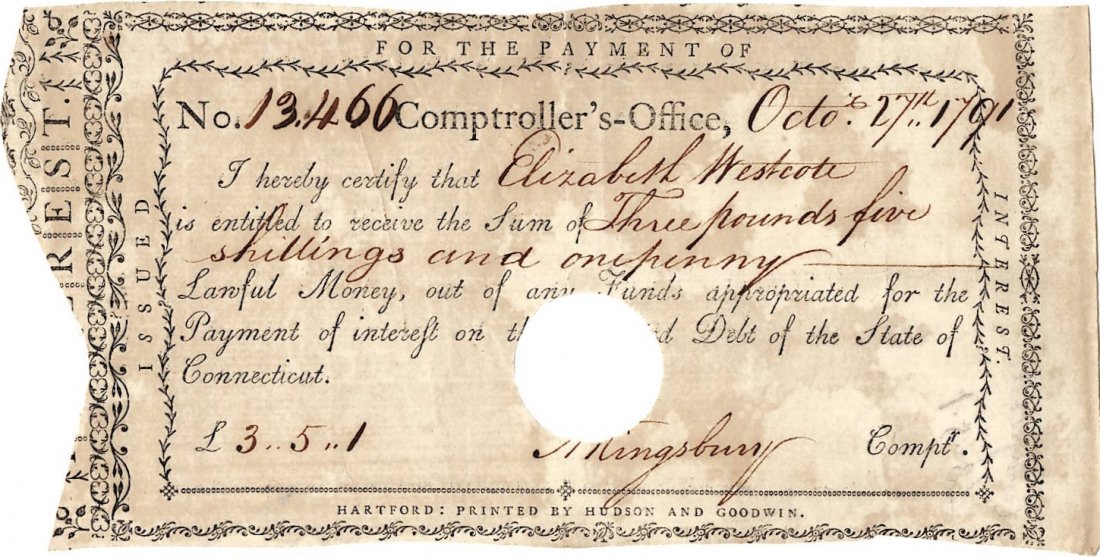 FOR THE PAYMENT OF
No. 13.466 Comptroller's-Office, Octo.r 27th. 1791
I hereby certify that Elizabeth Westcote
is entitled to receive the Sum of Three pounds five
shillings and one penny
Lawful Money, out of any Funds appropriated for the
Payment of intereſt on th ed Debt of the State of
Connecticut.
£ 3..5..1 A Kingsbury Comptr.
HARTFORD: PRINTED BY HUDSON AND GOODWIN.
ISSUED
INTEREST.